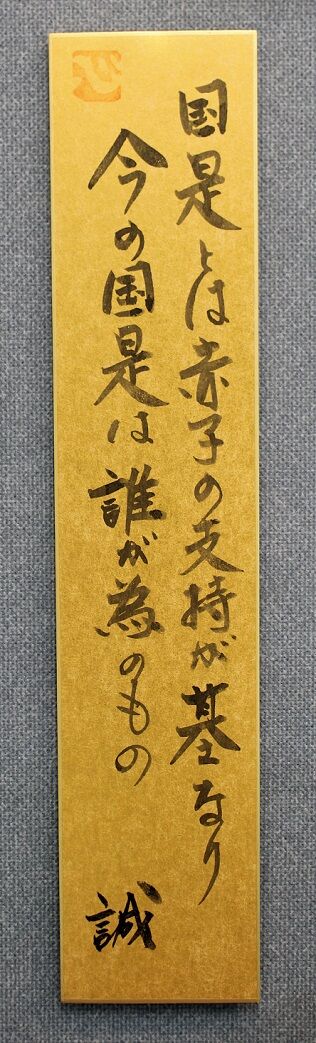 国是とは赤子の支持が基なり
今の国是は誰が為のもの
誠